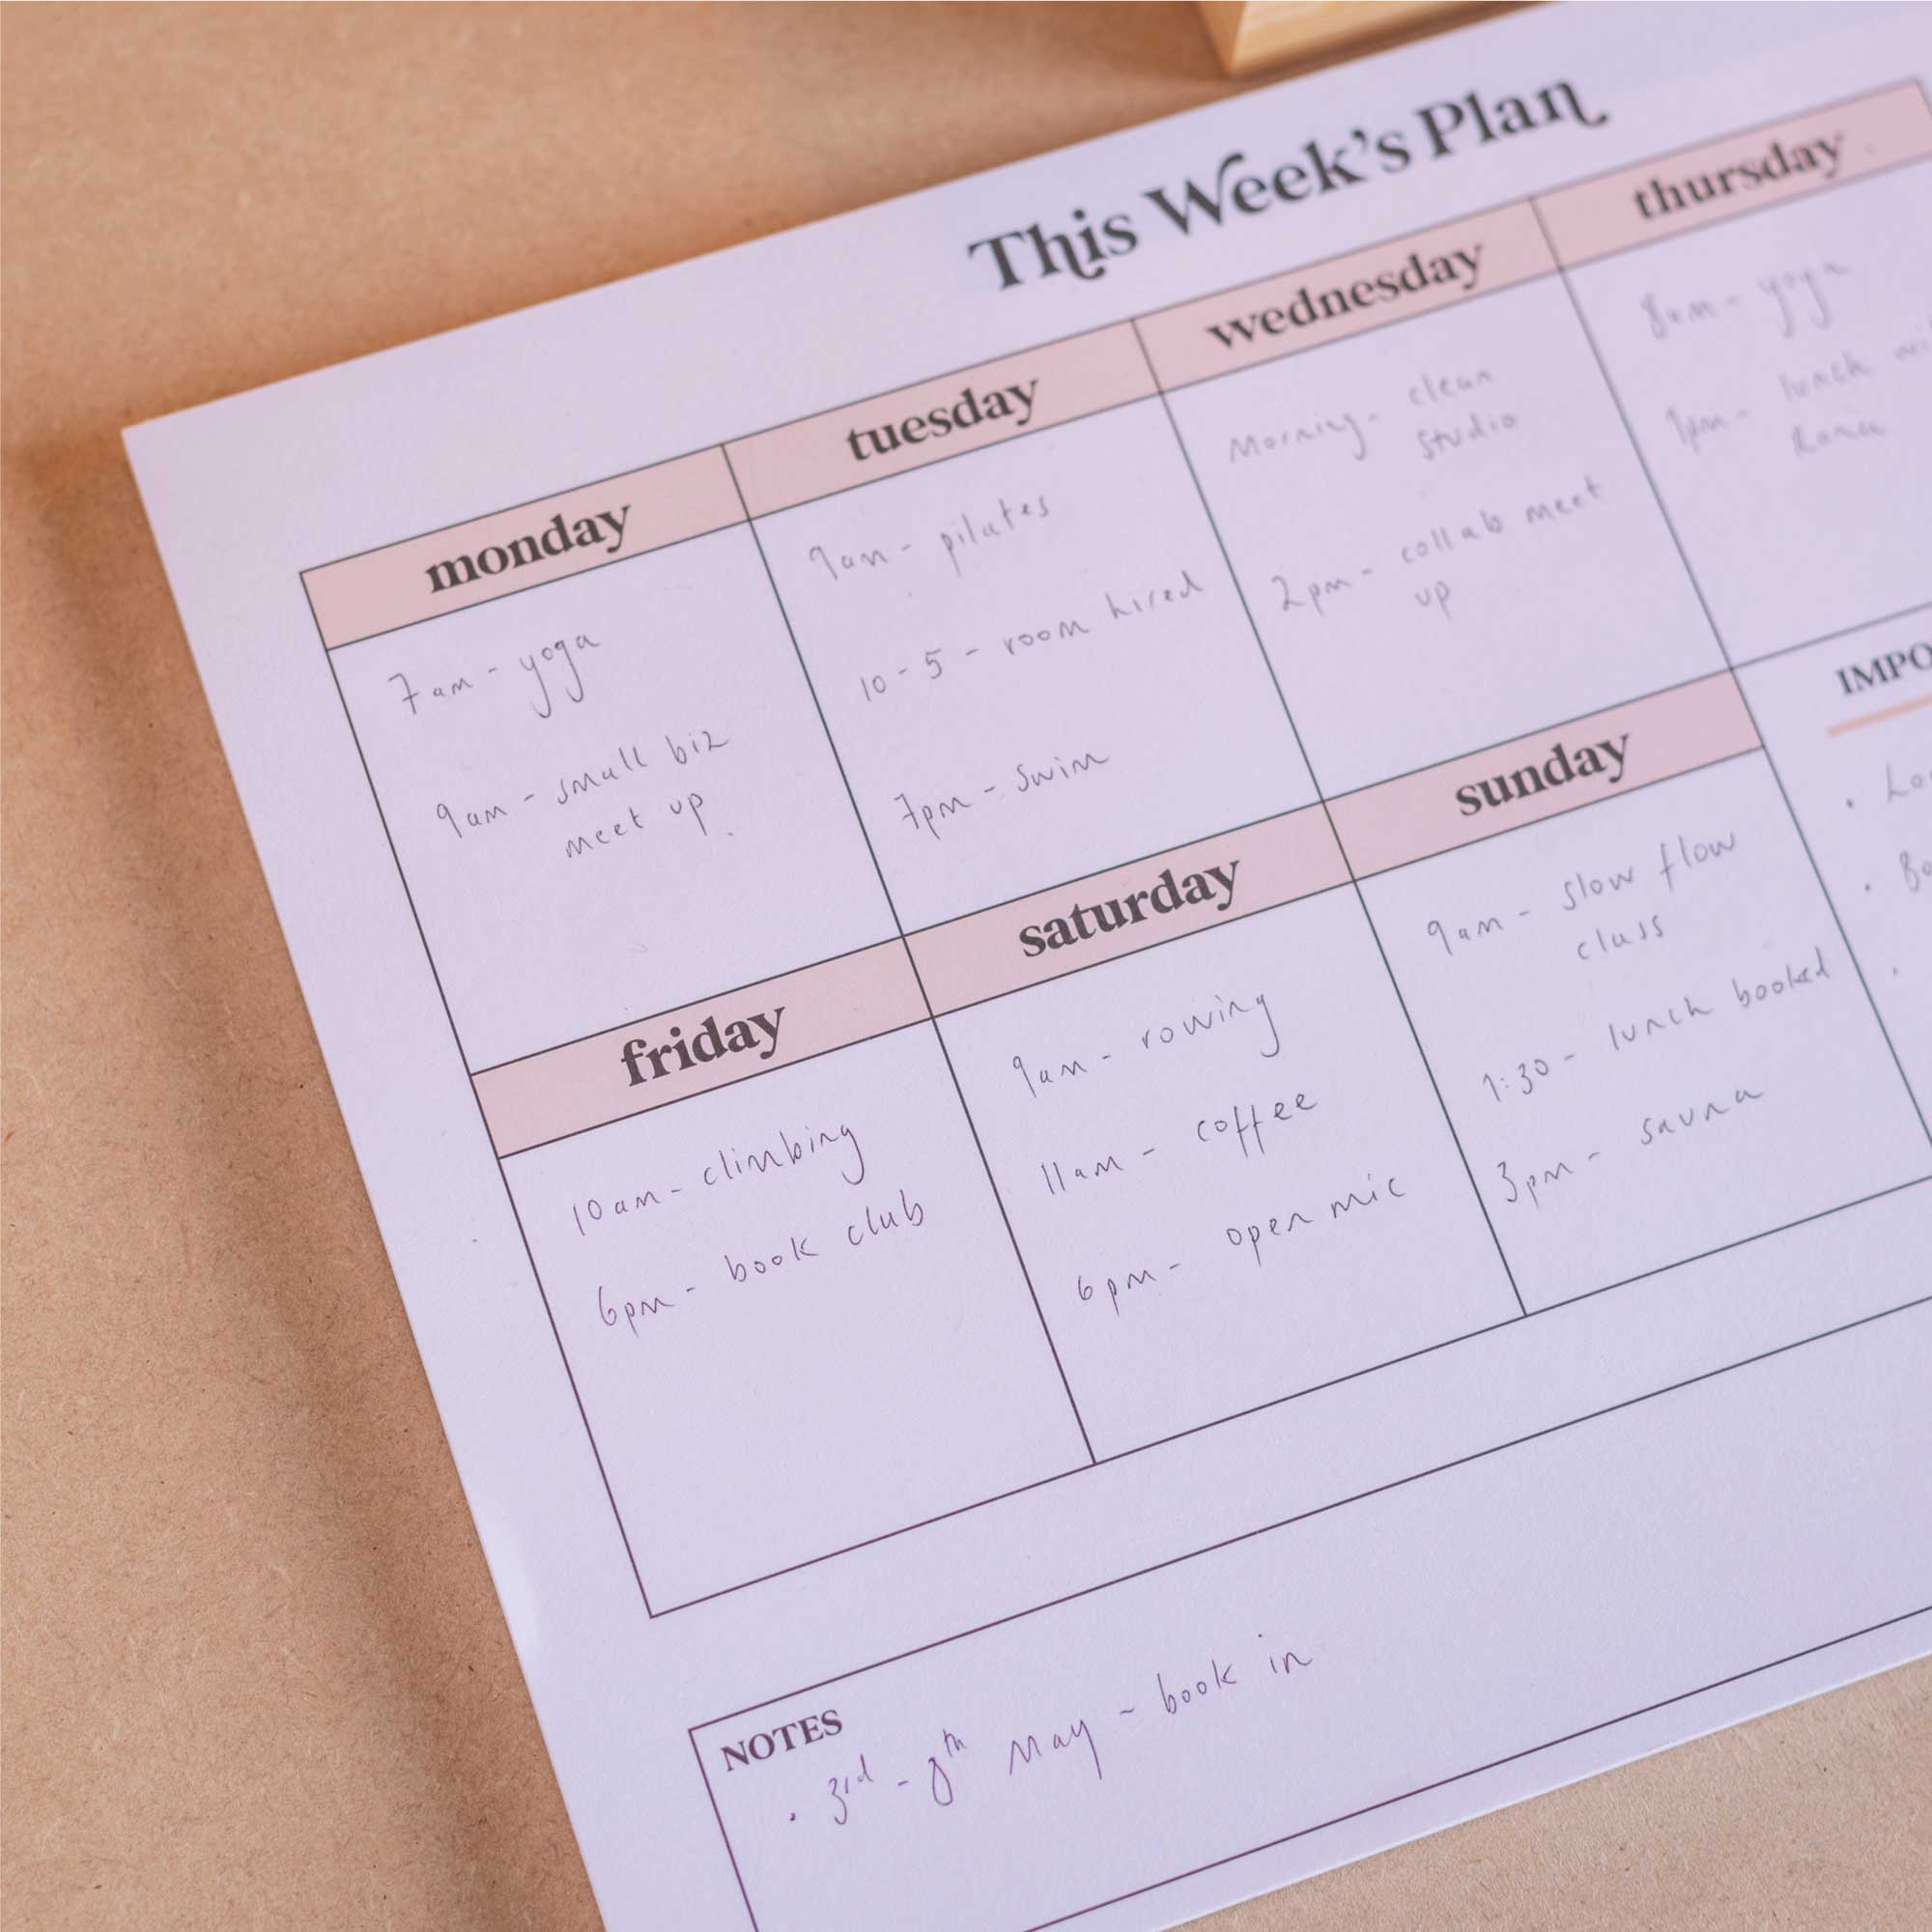 This Week's Plan
monday
7am - yoga
9am - small biz
meet up.
tuesday
9am - pilates
10-5 - room hired
7pm - swim
wednesday
Morning - clean
studio
2pm - collab meet
up
thursday
8am - yoga
1pm - lunch
friday
10am - climbing
6pm - book club
saturday
9am - rowing
11am - coffee
6pm - open mic
sunday
9am - slow flow
class
1:30 - lunch booked
3pm - sauna
IMPO
NOTES
• 3rd - 8th May - book in